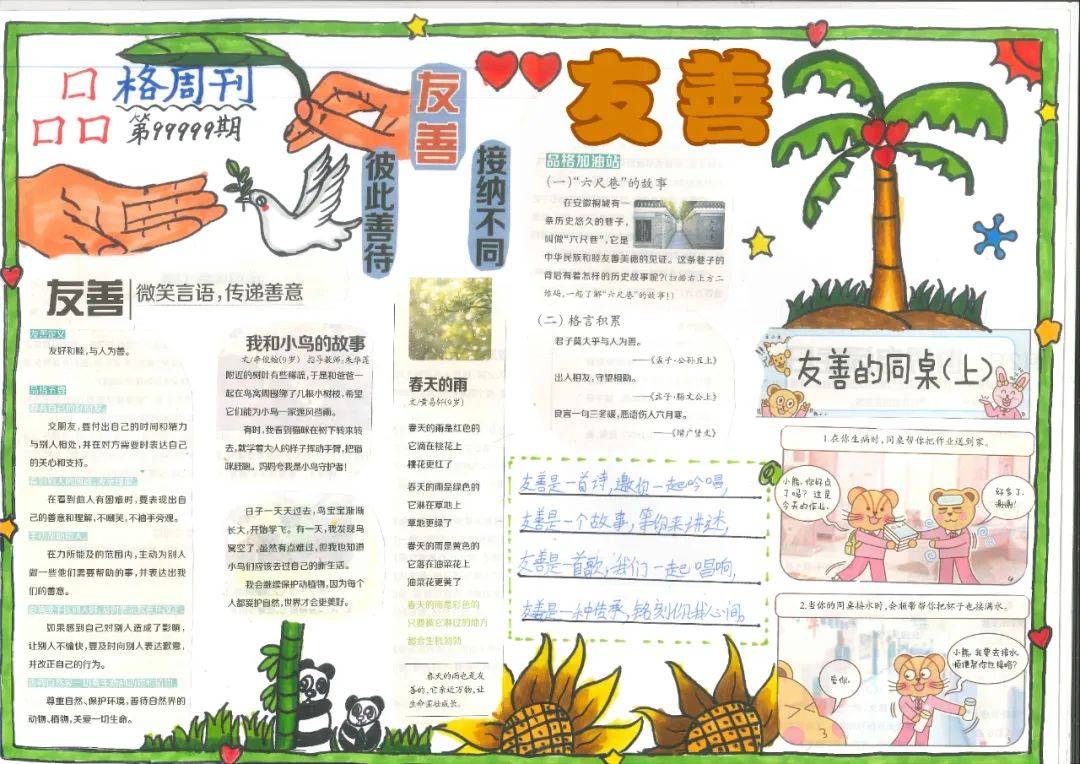 口格周刊
口口
第99999期
友善
彼此善待
接纳不同
友善
友善
微笑言语，传递善意
友善定义
友好和睦，与人为善。
品格五要
交朋友，要付出自己的时间和精力
与别人相处，并在对方需要时表达自己
的关心和支持。
在看到他人有困难时，要表现出自
己的善意和理解，不嘲笑，不袖手旁观。
主动帮助他人。
在力所能及的范围内，主动为别人
做一些他们需要帮助的事，并表达出我
们的善意。
如果感到自己对别人造成了影响，
让别人不愉快，要及时向别人表达歉意，
并改正自己的行为。
尊重自然、保护环境，善待自然界的
动物、植物，关爱一切生命。
我和小鸟的故事
文/辛俊翰(9岁) 指导教师:朱华莲
附近的树叶有些稀疏，于是和爸爸一
起在鸟窝周围绑了几根小树枝，希望
它们能为小鸟一家遮风挡雨。
有时，我看到猫咪在树下转来转
去，就学着大人的样子挥动手臂，把猫
咪赶跑。妈妈夸我是小鸟守护者！
日子一天天过去，鸟宝宝渐渐
长大，开始学飞。有一天，我发现鸟
窝空了，虽然有点难过，但我也知道
小鸟们应该去过自己的新生活。
我会继续保护动植物，因为每个
人都爱护自然，世界才会更美好。
春天的雨
文/黄易轩(9岁)
春天的雨是红色的
它滴在桃花上
桃花更红了
春天的雨是绿色的
它淋在草地上
草地更绿了
春天的雨是黄色的
它落在油菜花上
油菜花更黄了
春天的雨是彩色的
只要被它淋过的地方
都会生机勃勃
春天的雨也是友
善的，它亲近万物，让
生命茁壮成长。
品格加油站
(一)“六尺巷”的故事
在安徽桐城有一
条历史悠久的巷子，
叫做“六尺巷”，它是
中华民族和睦友善美德的见证。这条巷子的
背后有着怎样的历史故事呢？(扫描右上方二
维码，一起了解“六尺巷”的故事！)
(二) 格言积累
君子莫大乎与人为善。
——《孟子·公孙丑上》
出入相友，守望相助。
——《孟子·滕文公上》
良言一句三冬暖，恶语伤人六月寒。
——《增广贤文》
友善是一首诗，邀你一起吟唱，
友善是一个故事，等你来讲述，
友善是一首歌，我们一起唱响，
友善是一种传承，铭刻你我心间。
友善的同桌(上)
1.在你生病时，同桌帮你把作业送到家。
小熊，你好点
了吗？这是
今天的作业。
好多了，
谢谢！
2.当你的同桌接水时，会顺带帮你把杯子也接满水。
爱你。
小熊，我要去接水，
顺便帮你也接吗？
3